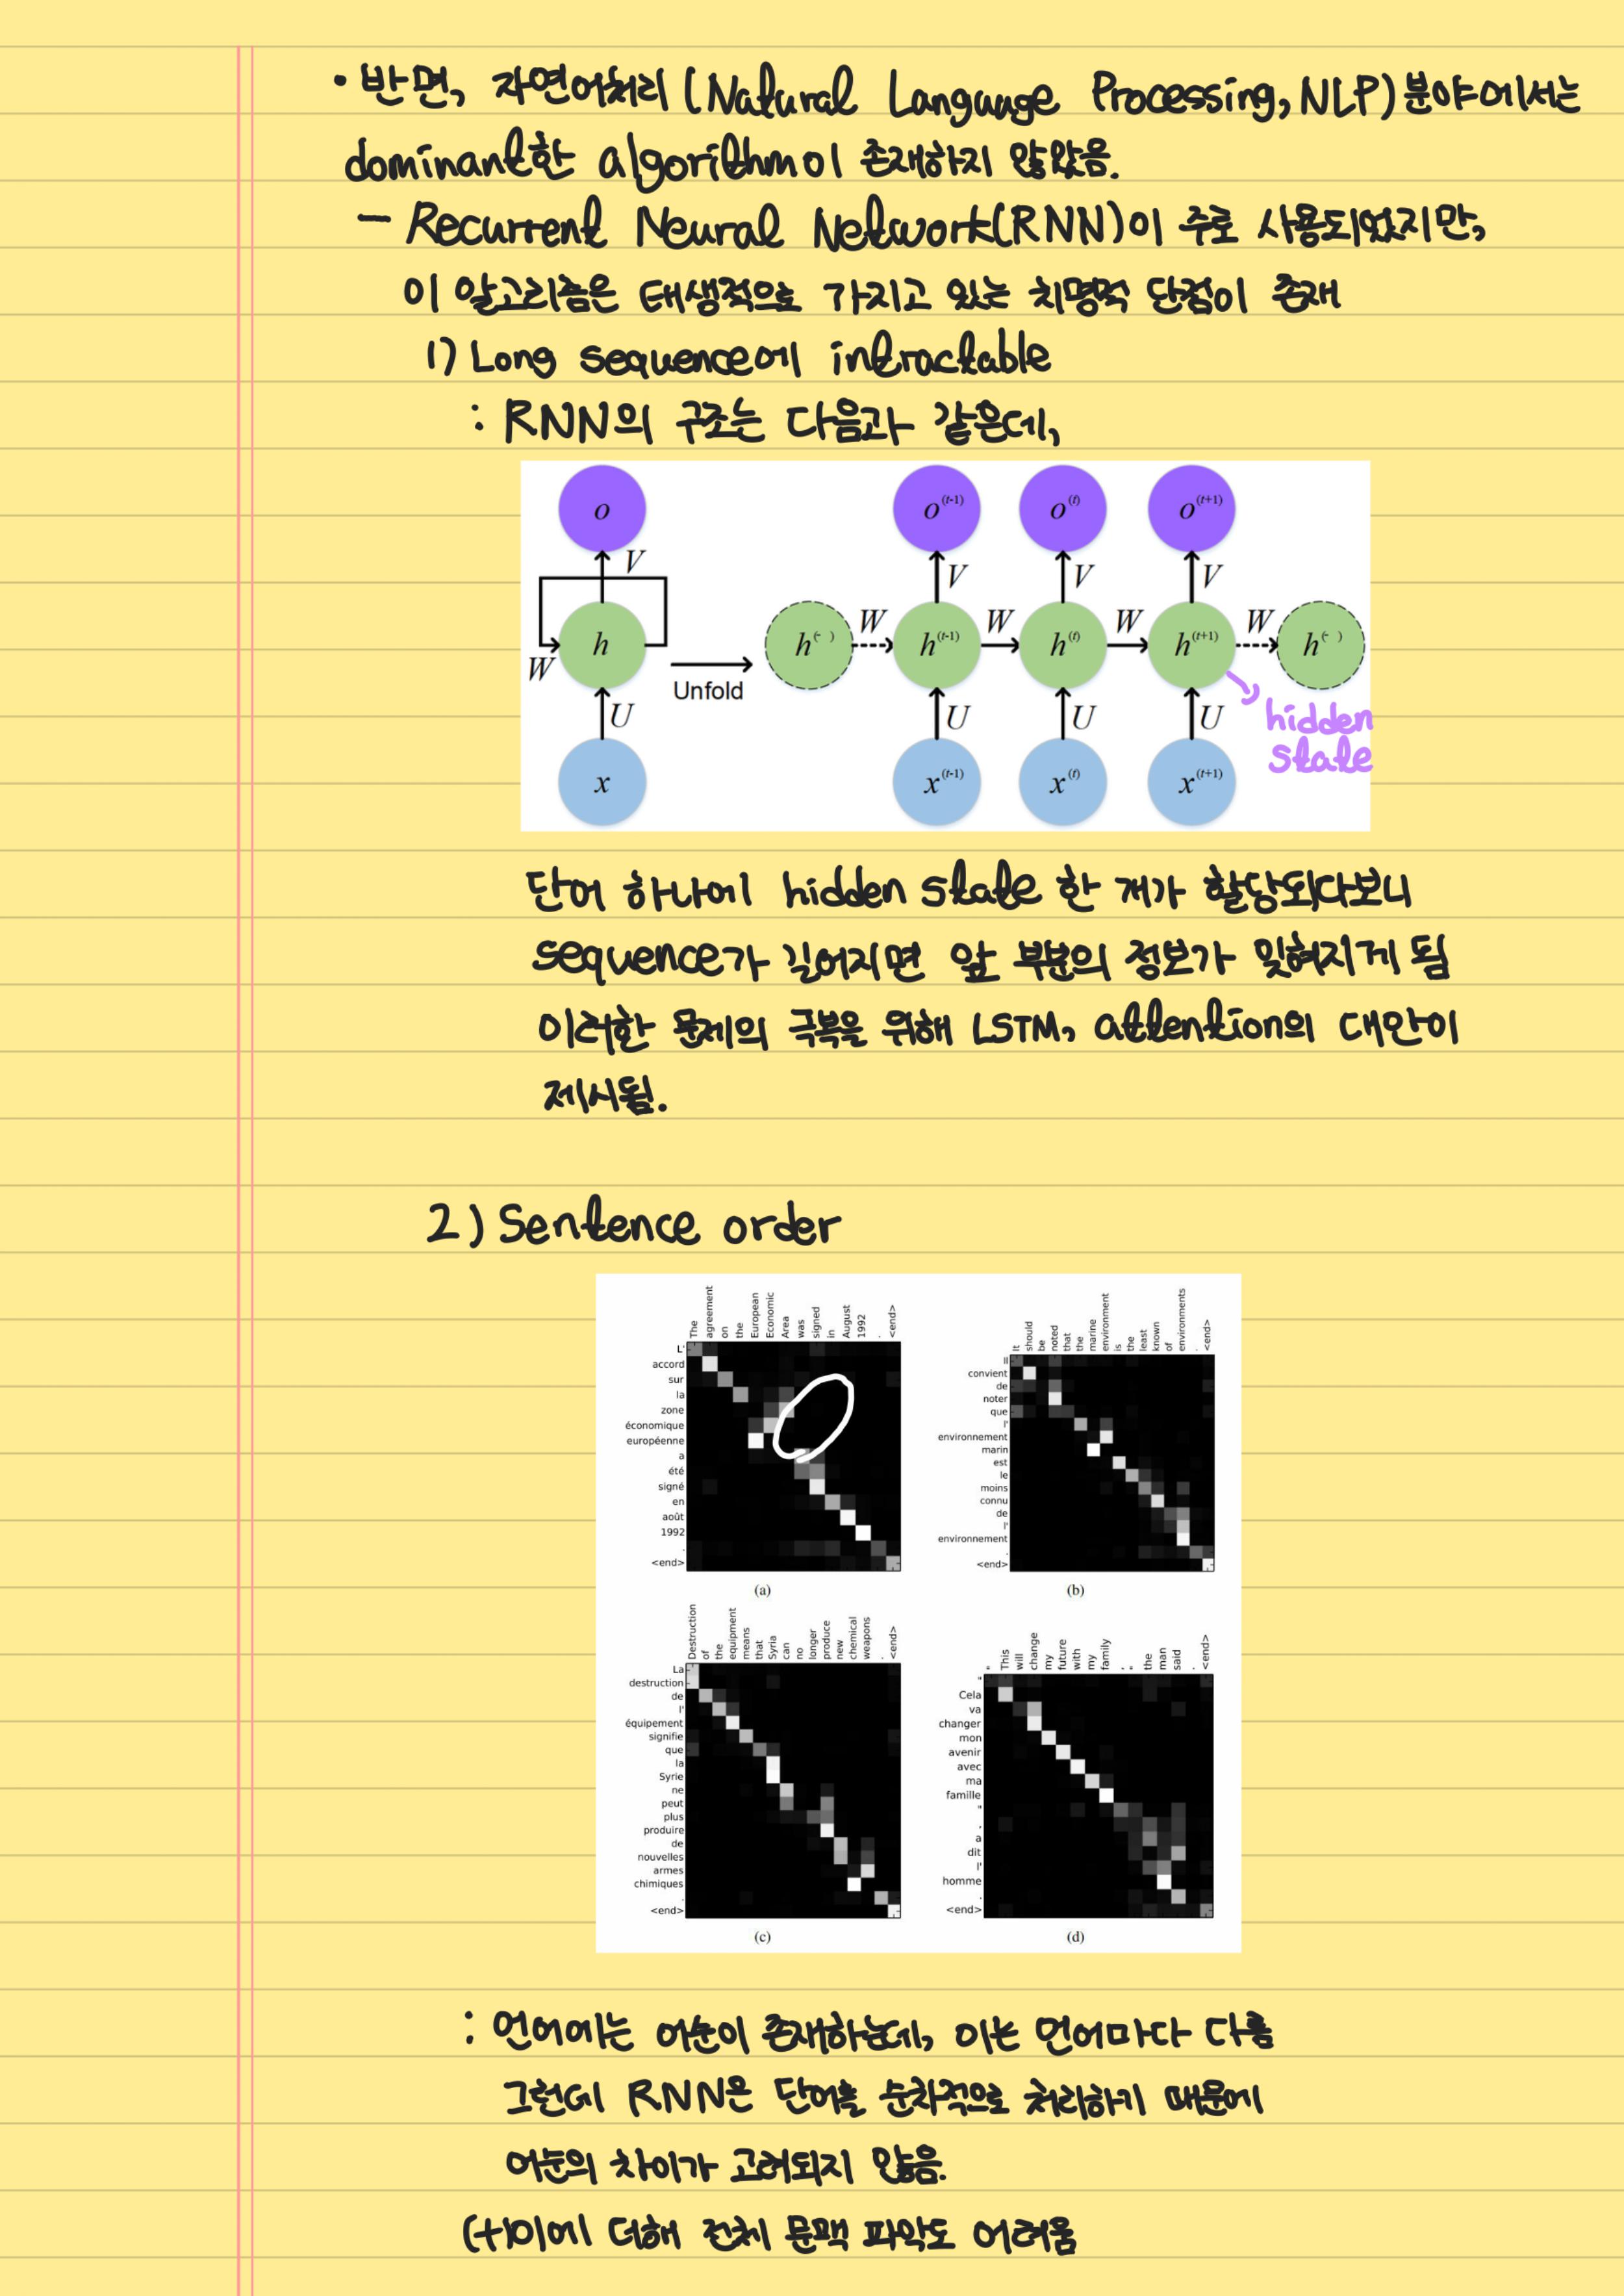 • 반면, 자연어처리 (Natural Language Processing, NLP) 분야에서는
dominant한 algorithm이 존재하지 않았음.
- Recurrent Neural Network(RNN)이 주로 사용되었지만,
이 알고리즘은 태생적으로 가지고 있는 치명적 단점이 존재
1) Long sequence에 intractable
: RNN의 구조는 다음과 같은데,
o o(t-1) o(t) o(t+1)
V V V V
h h(- ) W h(t-1) W h(t) W h(t+1) W h(- )
W
Unfold
U U U U
hidden
state
x x(t-1) x(t) x(t+1)
단어 하나에 hidden state 한 개가 할당되다보니
sequence가 길어지면 앞 부분의 정보가 잊혀지게 됨
이러한 문제의 극복을 위해 LSTM, attention의 대안이
제시됨.
2) Sentence order
The agreement on the European Economic Area was signed in August 1992 . <end>
L'
accord
sur
la
zone
économique
européenne
a
été
signé
en
août
1992
.
<end>
(a)
It should be noted that the marine environment is the least known of environments . <end>
Il
convient
de
noter
que
l'
environnement
marin
est
le
moins
connu
de
l'
environnement
.
<end>
(b)
Destruction of the equipment means that Syria can no longer produce new chemical weapons . <end>
La
destruction
de
l'
équipement
signifie
que
la
Syrie
ne
peut
plus
produire
de
nouvelles
armes
chimiques
.
<end>
(c)
" This will change my future with my family , " the man said . <end>
"
Cela
va
changer
mon
avenir
avec
ma
famille
"
,
a
dit
l'
homme
.
<end>
(d)
: 언어에는 어순이 존재하는데, 이는 언어마다 다름
그런데 RNN은 단어를 순차적으로 처리하기 때문에
어순의 차이가 고려되지 않음.
(+)이에 더해 전체 문맥 파악도 어려움